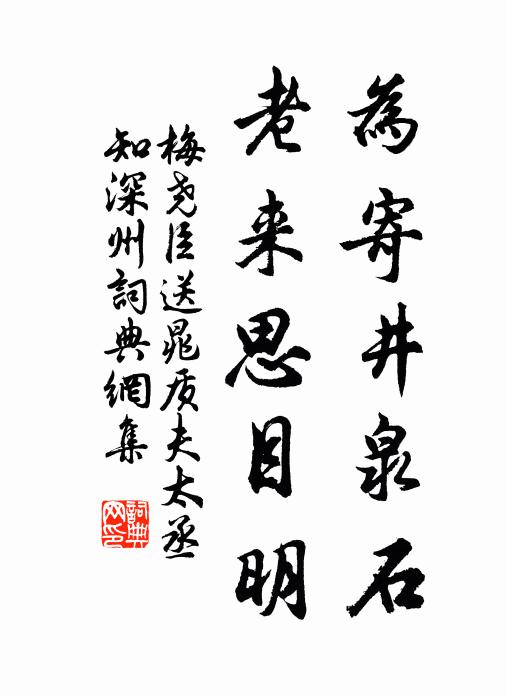 為寄井泉石
老来思目明
梅尧臣送晁质夫太丞
知深州詞典網集
詞典
网印